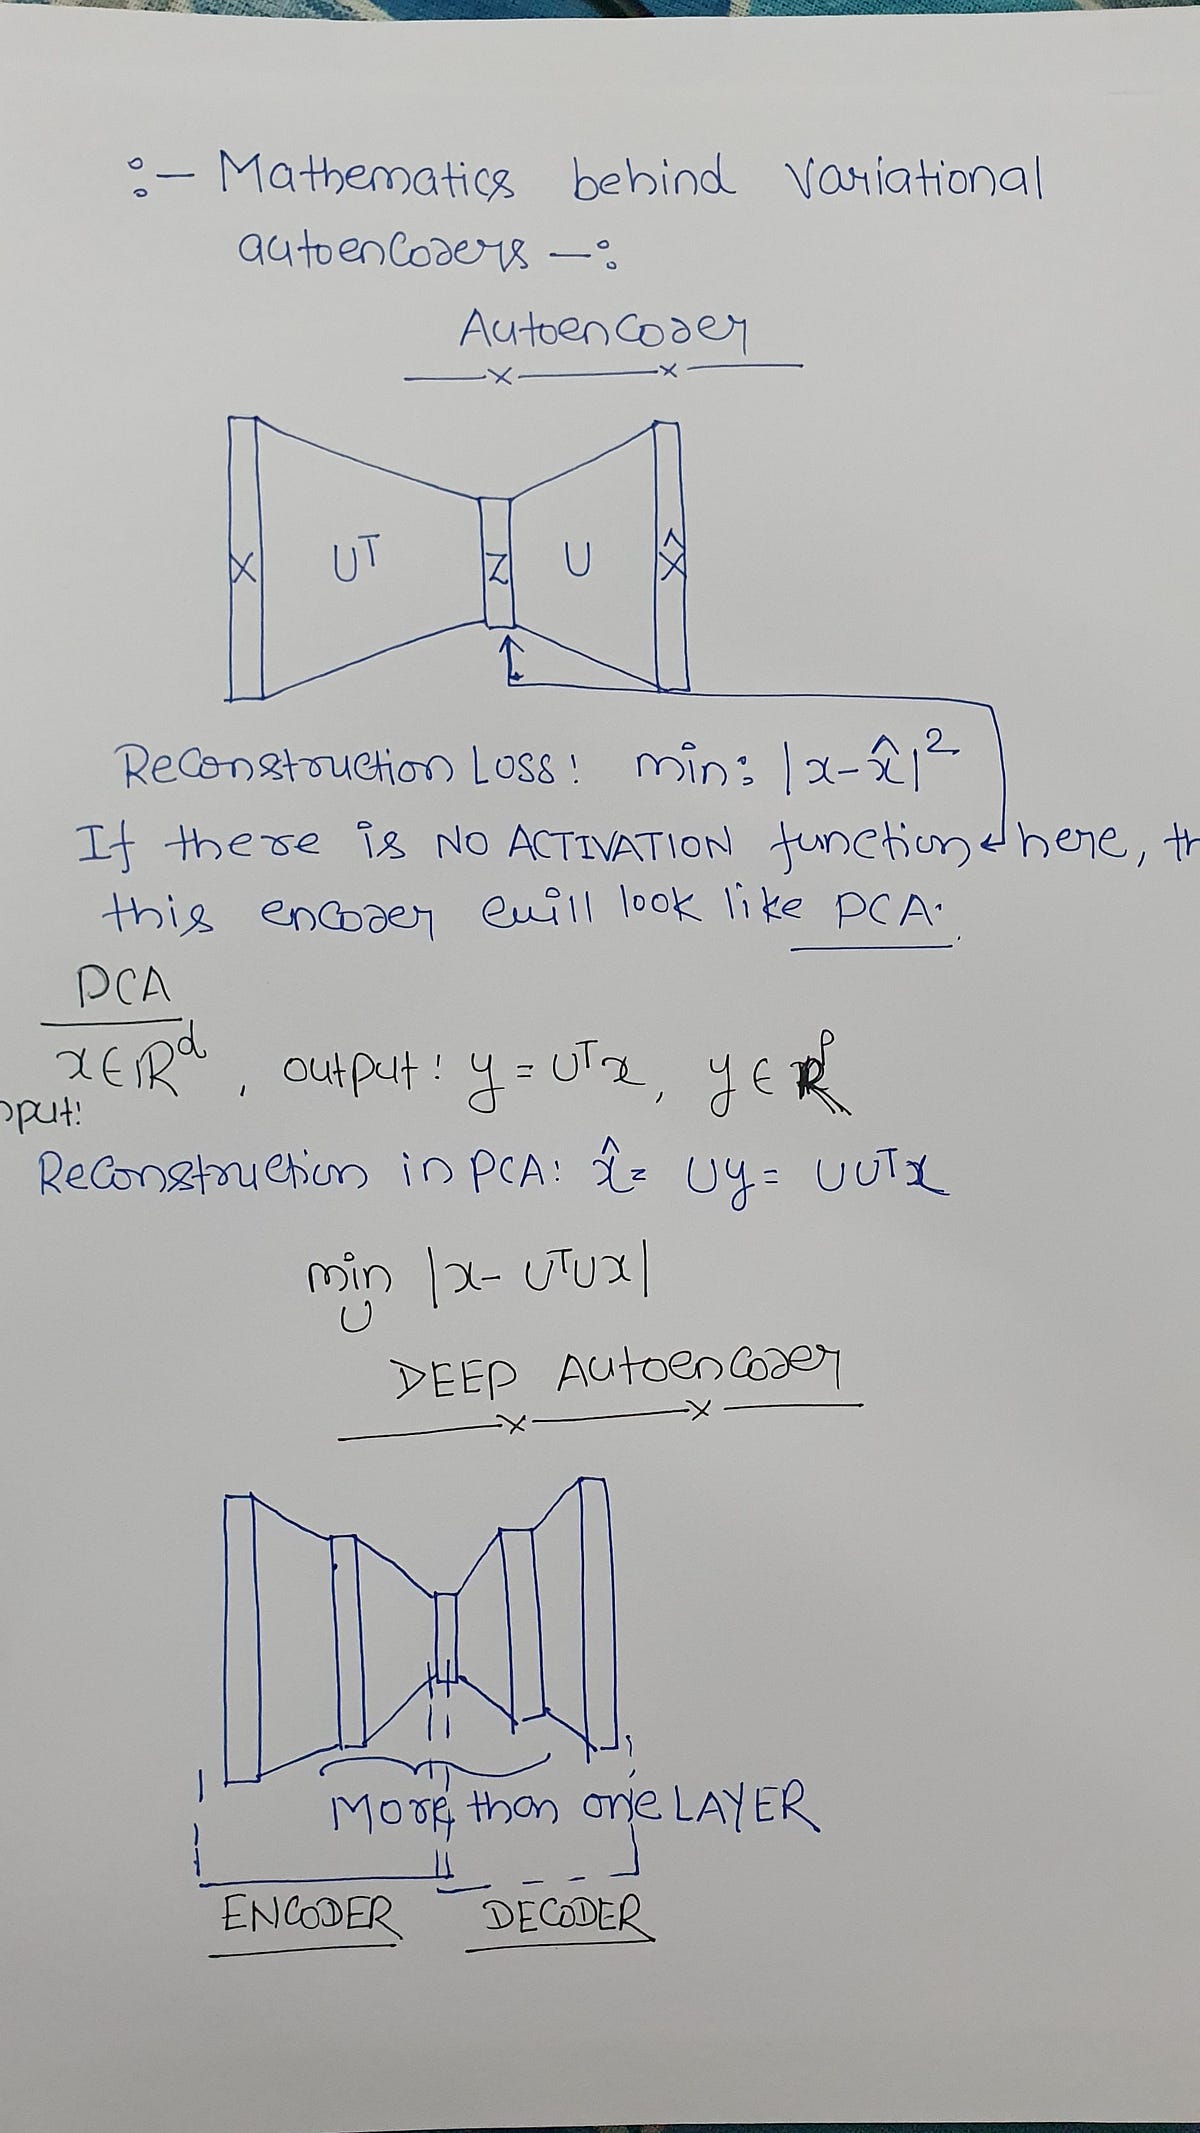 :- Mathematics behind Variational
autoencoders -:
Autoencoder
X UT Z U X̂
Reconstruction Loss: min: |x-x̂|²
If there is NO ACTIVATION function here, th
this encoder will look like PCA.
PCA
x∈ℝᵈ, output: y = Uᵀx, y ∈ ℝᵖ
nput:
Reconstruction in PCA: x̂ = Uy = UUᵀx
min |x- UᵀUx|
U
DEEP Autoencoder
More than one LAYER
ENCODER DECODER